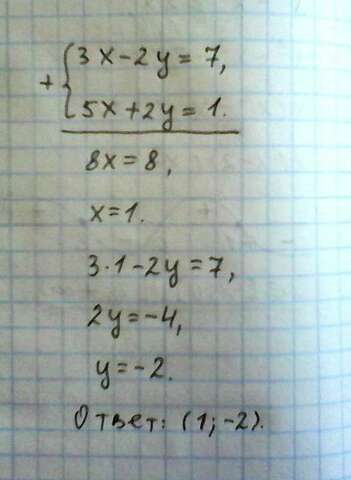 + { 3x-2y=7,
5x+2y=1.
8x=8,
x=1.
3·1-2y=7,
2y=-4,
y=-2.
Ответ: (1;-2).